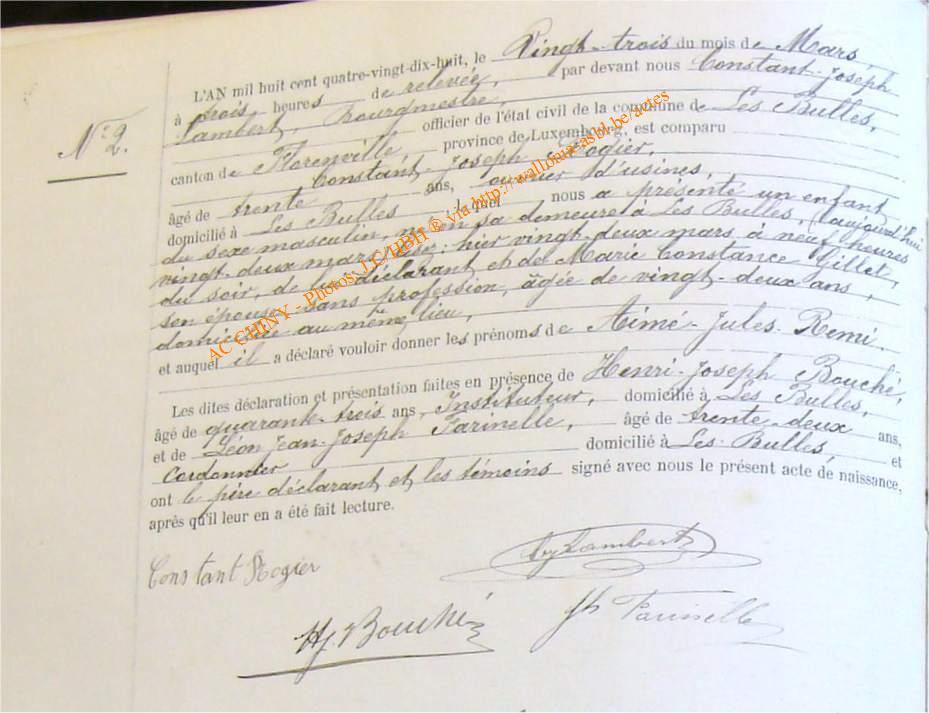 N° 2.
L'AN mil huit cent quatre-vingt-dix-huit, le Vingt-trois du mois de Mars,
à trois heures de relevée, par devant nous Constant-Joseph
Lambert, Bourgmestre, officier de l'état civil de la commune de Les Bulles,
canton de Florenville province de Luxembourg, est comparu
Constant-Joseph Rogier,
âgé de trente ans, ouvrier d'usines,
domicilié à Les Bulles lequel nous a présenté un enfant
du sexe masculin, né en sa demeure à Les Bulles, aujourd'hui
vingt-deux mars hier vingt-deux mars à neuf heures
du soir, de lui déclarant et de Marie Constance Gillet,
son épouse, sans profession, âgée de vingt-deux ans,
domiciliée au même lieu,
et auquel il a déclaré vouloir donner les prénoms de Aimé-Jules-Remi.
Les dites déclaration et présentation faites en présence de Henri-Joseph Bouché,
âgé de quarante-trois ans, Instituteur, domicilié à Les Bulles,
et de Léon Jean-Joseph Farinelle, âgé de trente-deux ans,
Cordonnier domicilié à Les-Bulles, et
ont le père déclarant et les témoins signé avec nous le présent acte de naissance,
après qu'il leur en a été fait lecture.
Lambert
Constant Rogier
Hj. Bouché
Farinelle
AC CHINY - Photos: J.C/HBH ® via http://wallonia-asbl.be/actes